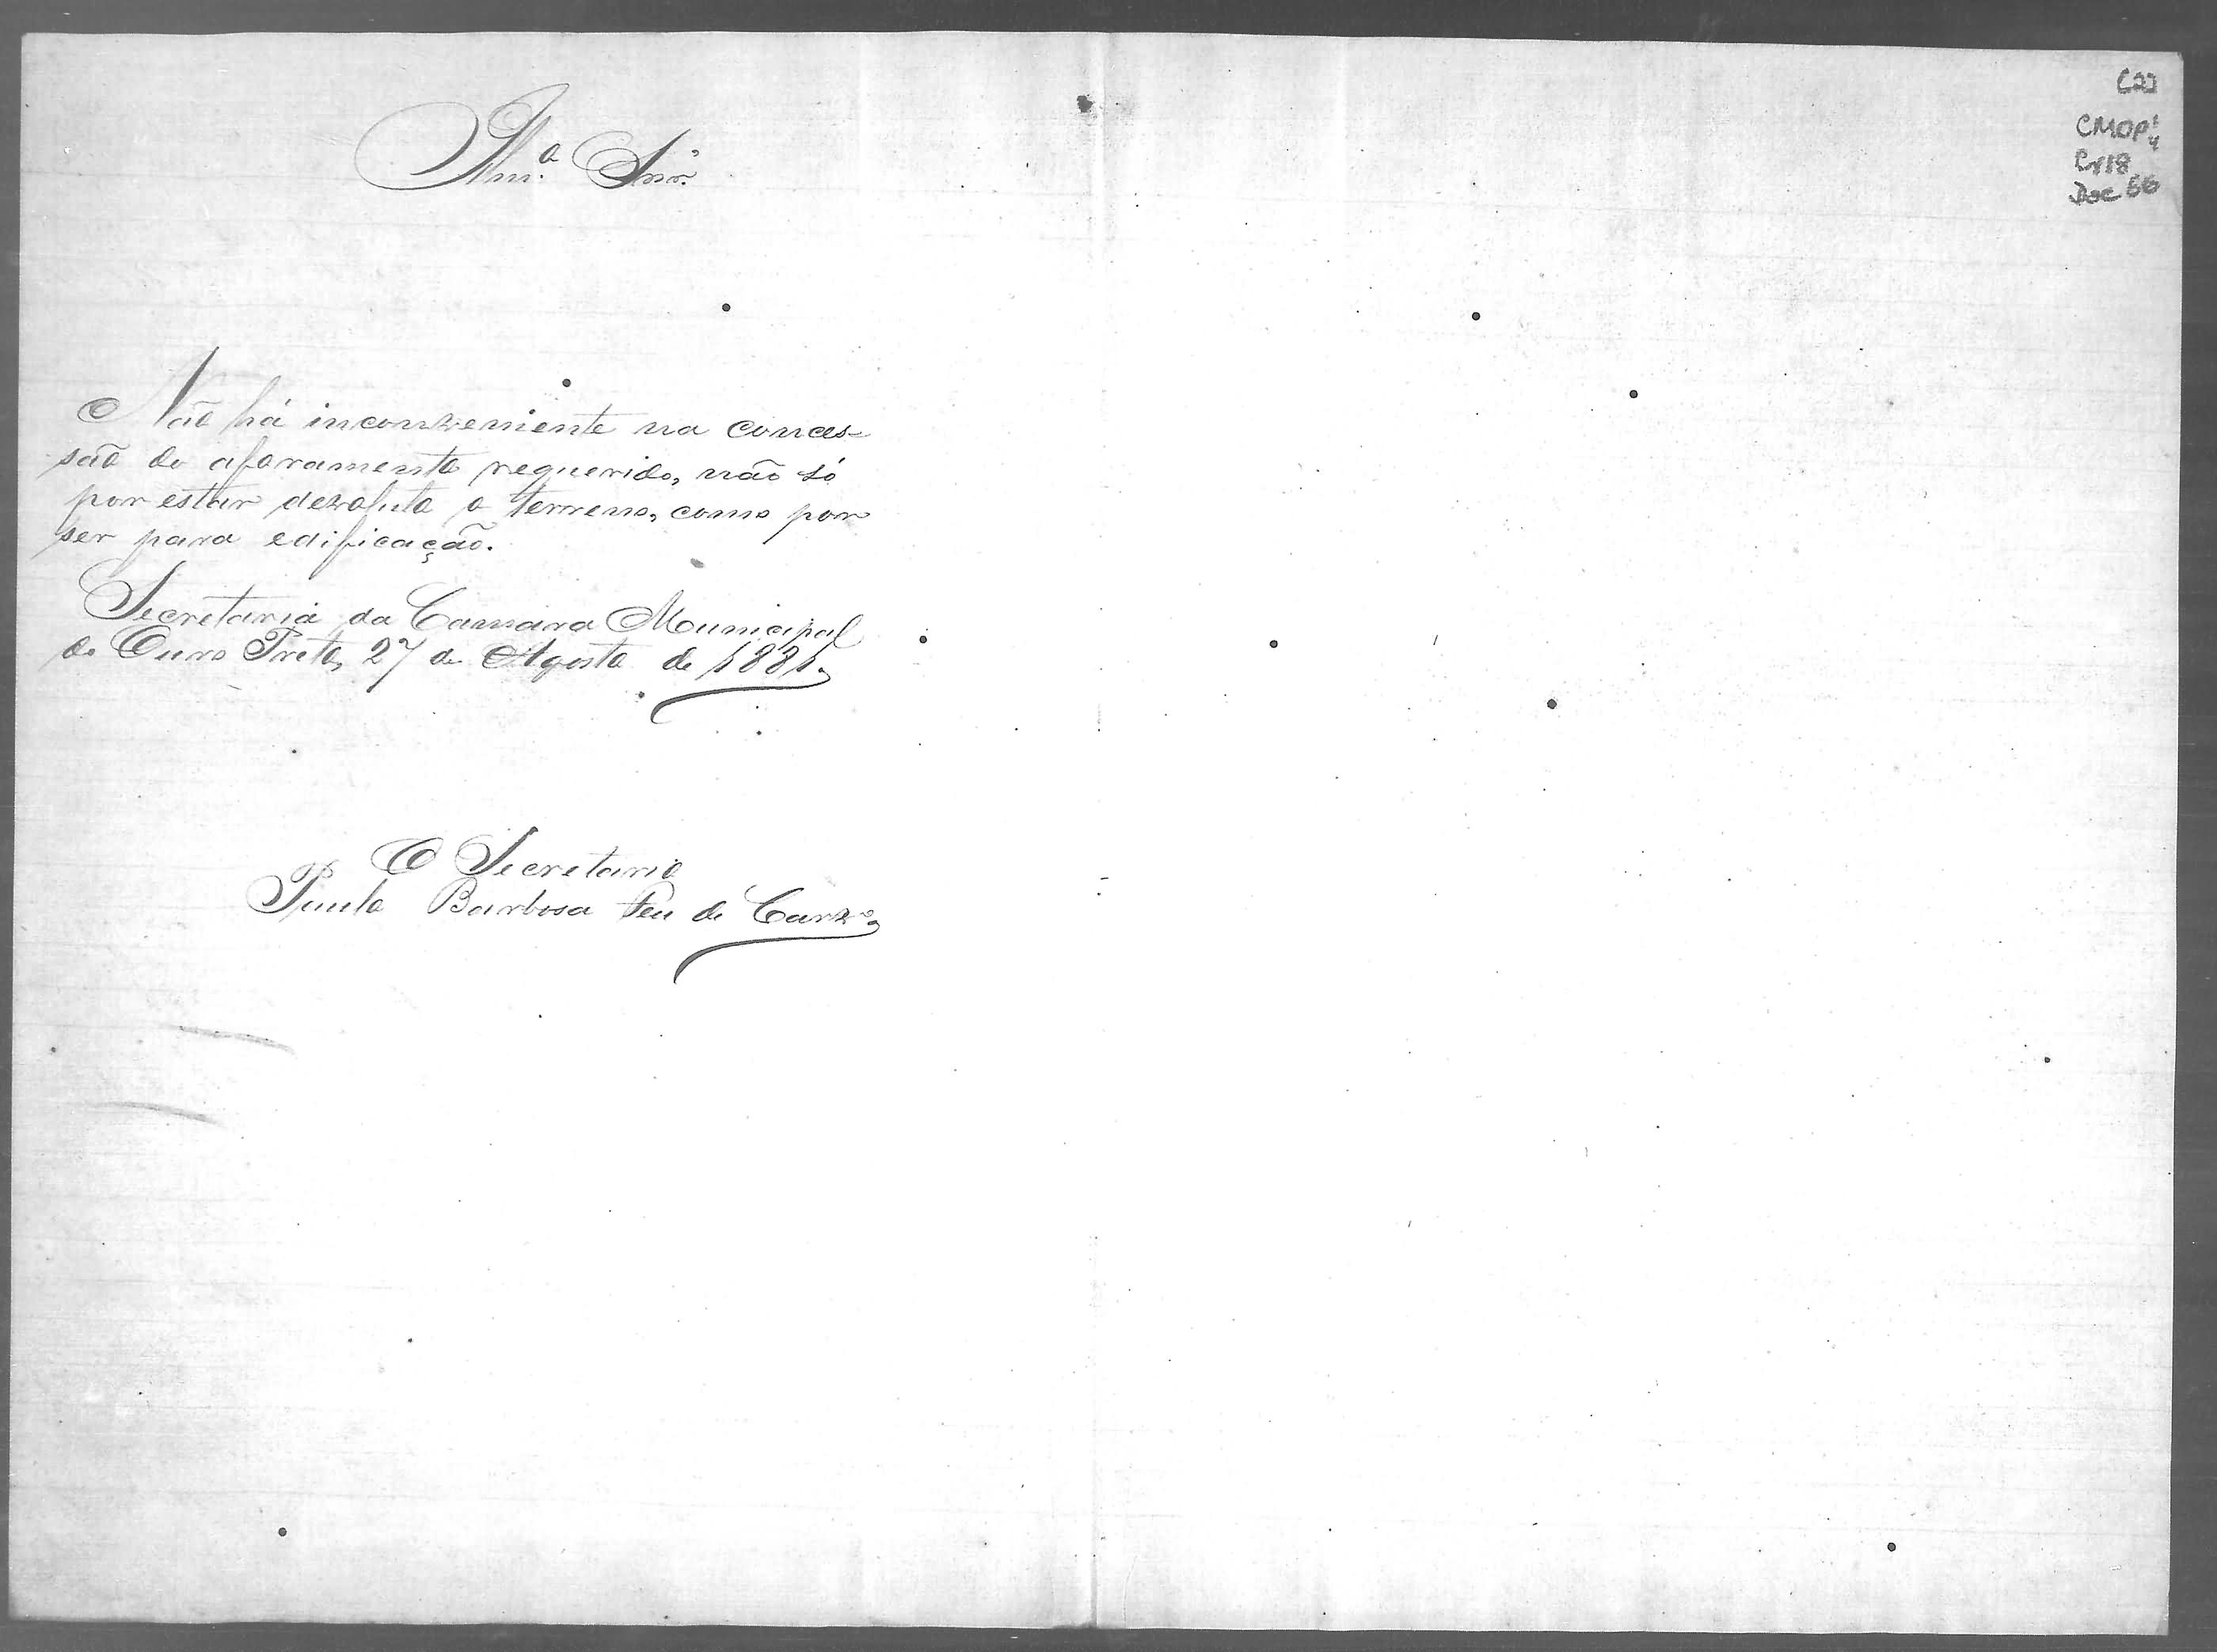 Illm.º Snr.º
Não há inconveniente na conces-
são do aforamento requerido, não só
por estar devoluto o terreno, como por
ser para edificação.
Secretaria da Camara Municipal
de Ouro Preto, 27 de Agosto de 1881.
O Secretario
Paulo Barbosa de Carv.º
CMOP
Cx18
Doc 66